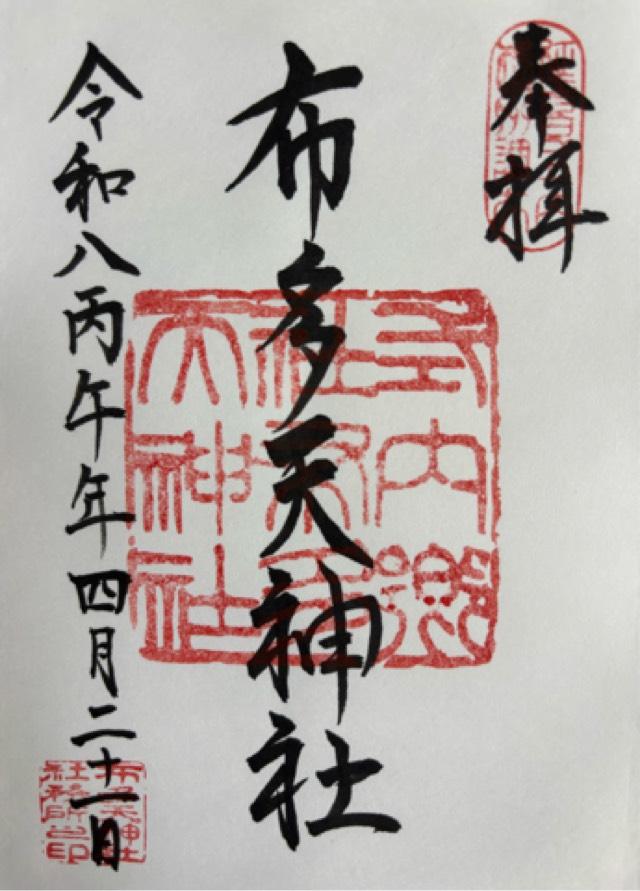 奉拝
布多天神社
式内郷
社布多
天神社
令和八丙午年四月二十一日
布多天神社
社務所之印